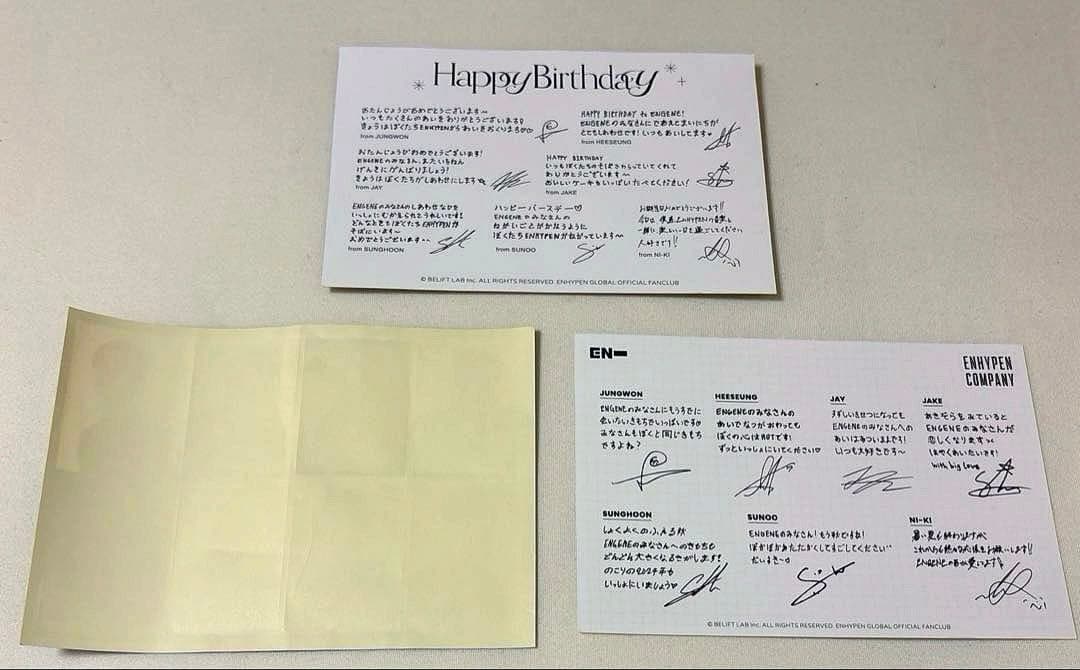 Happy Birthday
おたんじょうびおめでとうございます〜
いつもたくさんのあいをありがとうございます♡
きょうはぼくたちENHYPENから
from JUNGWON
HAPPY BIRTHDAY to ENGENE!
ENGENEのみなさんにであえたまいにちが
とてもしあわせです! いつもあいしてます♥
from HEESEUNG
おたんじょうびおめでとうございます!
ENGENEのみなさん、またいちねん
げんきにがんばりましょう!
きょうはぼくたちがしあわせにします
from JAY
HAPPY BIRTHDAY
いつもぼくたちのそばさいていてくれて
ありがとうございます〜
おいしいケーキもいっぱいたべてください!
from JAKE
ENGENEのみなさんのしあわせなひを
いっしょにむかえられてうれしいです!
どんなときもぼくたちENHYPENが
そばにいます〜
おめでとうございます
from SUNGHOON
ハッピーバースデー♡
ENGENEのみなさんの
ねがいごとがかなうように
ぼくたちENHYPENがねがっています〜
from SUNOO
お誕生日おめでとうございます!!
今日は僕達ENHYPENの音楽と
一緒に楽しい一日を過ごしてください
大好きです!!
from NI-KI
© BELIFT LAB Inc. ALL RIGHTS RESERVED. ENHYPEN GLOBAL OFFICIAL FANCLUB
EN–
ENHYPEN
COMPANY
JUNGWON
ENGENEのみなさんにもうすでに
会いたいきもちでいっぱいですが
みなさんもぼくと同じきもち
ですよね?
HEESEUNG
ENGENEのみなさんの
あいでなつがおわっても
ぼくの心はHOTです!
ずっといっしょにいてください♡
JAY
すずしいきせつになっても
ENGENEのみなさんへの
あいはあついままです!
いつも大好きです〜
JAKE
あきぞらをみていると
ENGENEのみなさんが
恋しくなります
はやくあいたいです!
with big love
SUNGHOON
しょくよくのふえる秋
ENGENEのみなさんへのきもちも
どんどん大きくなるきがします!
のこりの2024年も
いっしょにいましょう♡
SUNOO
ENGENEのみなさん! もう秋ですね!
ぽかぽかあたたかくしてすごしてください
だいすき〜
NI-KI
暑い夏も終わりますが
これからも
ENGENEの
© BELIFT LAB Inc. ALL RIGHTS RESERVED. ENHYPEN GLOBAL OFFICIAL FANCLUB